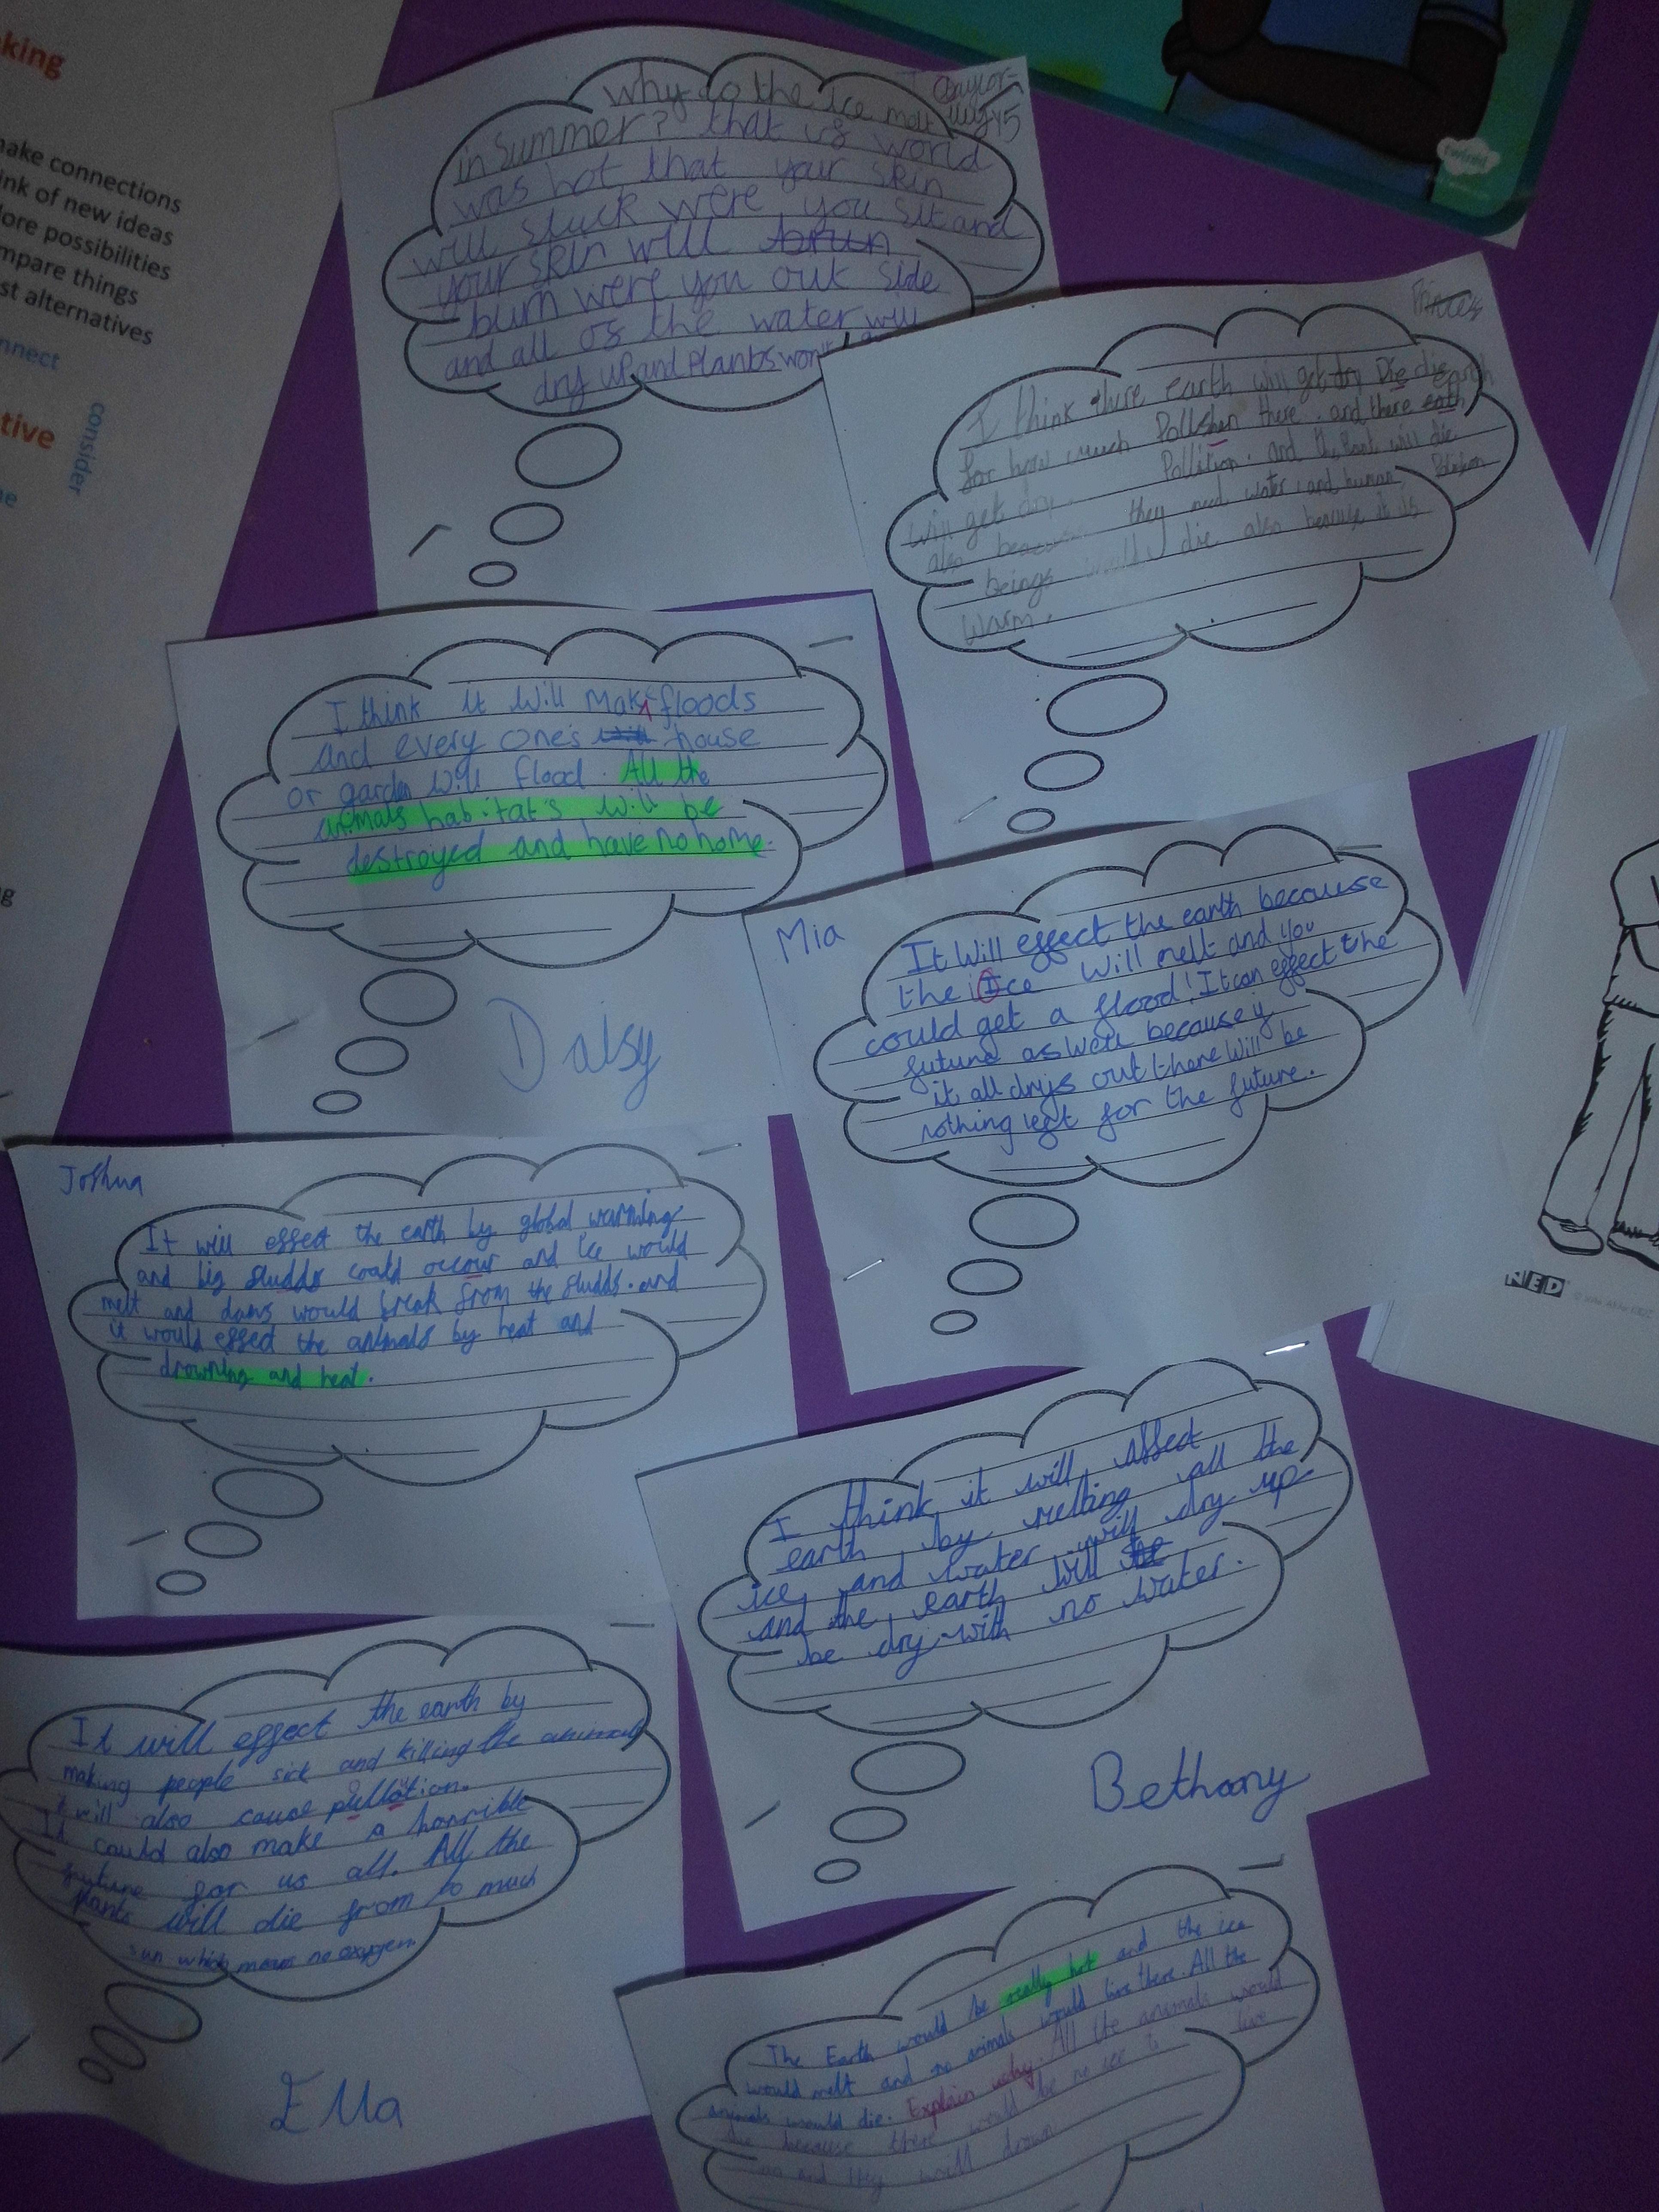 king
ake connections
ink of new ideas
lore possibilities
mpare things
st alternatives
nnect
tive
consider
e
g
twinkl
why do the ice melt
in summer? that us world
was hot that your skin
will stuck were you sit and
your skin will brun
burn were you out side
and all of the water will
dry up and plants won't
Princes
I think there earth will get dry Die die earth
for how much Pollshen there. and there
will get dry. Pollition. and the Plant will die
also because they need water and human
beings would die also because it is
warm.
I think it will mak floods
and every one's will house
or garden will flood. All the
animals habitat's will be
destroyed and have no home.
Daisy
Mia
It will effect the earth because
the iIce will melt and you
could get a flood! It can effect the
future as well because if
it all drys out there will be
nothing left for the future.
Joshua
It will effect the earth by global warming
and big fludds could occour and ice would
melt and dams would break from the fludds. and
it would effect the animals by heat and
drowning and heat.
NED
I think it will affect
earth by melting all the
ice and water will dry up
and the earth will be
be dry with no water.
Bethany
It will effect the earth by
making people sick and killing the animals
it will also cause pullotion.
It could also make a horrible
future for us all. All the
plants will die from to much
sun which means no oxygen.
Ella
The Earth would be really hot and the ice
would melt and no animals would live there. All the
animals would die. Explain why. All the animals would
die because there would be no ice to live
on and they would drown.